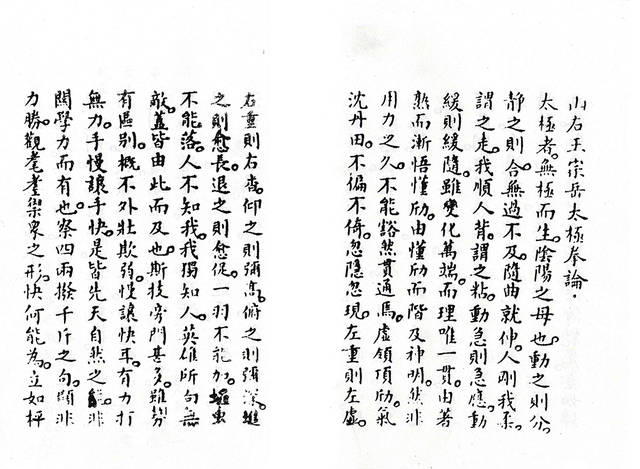 山右王宗岳太極拳論.
太極者。無極而生。陰陽之母也。動之則分。
靜之則合。無過不及。隨曲就伸。人剛我柔。
謂之走。我順人背。謂之粘。動急則急應。動
緩則緩隨。雖變化萬端。而理唯一貫。由著
熟而漸悟懂劤。由懂劤而階及神明。然非
用力之久。不能豁然貫通焉。虛領頂劤。氣
沈丹田。不偏不倚。忽隱忽現。左重則左虛。
右重則右杳。仰之則彌高。俯之則彌深。進
之則愈長。退之則愈促。一羽不能加。虫
不能落。人不知我。我獨知人。英雄所向無
敵。蓋皆由此而及也。斯技旁門甚多。雖勢
有區別。概不外壯欺弱。慢讓快耳。有力打
無力。手慢讓手快。是皆先天自然之能。非
関學力而有也。察四兩撥千斤之句。顯非
力勝。觀耄耋禦眾之形。快何能為。立如枰